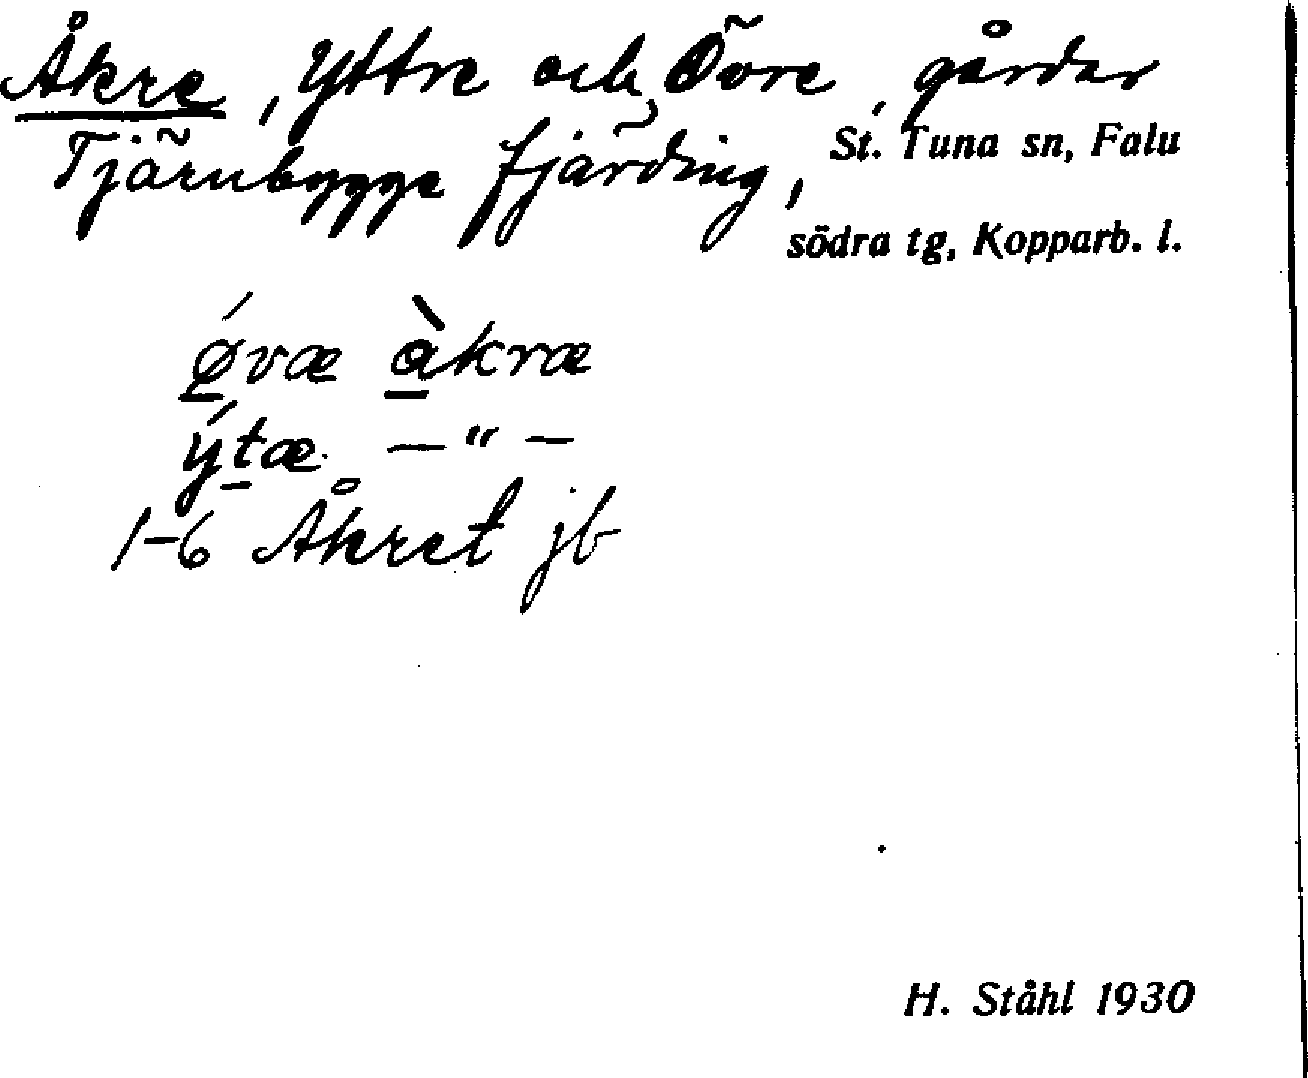 Åkre, Yttre och Övre, gårdar
Tjärnbygge fjärding, St. Tuna sn, Falu
södra tg, Kopparb. l.
ǿvæ àkræ
ýtæ —"—
1-6 Åkret jb
H. Ståhl 1930